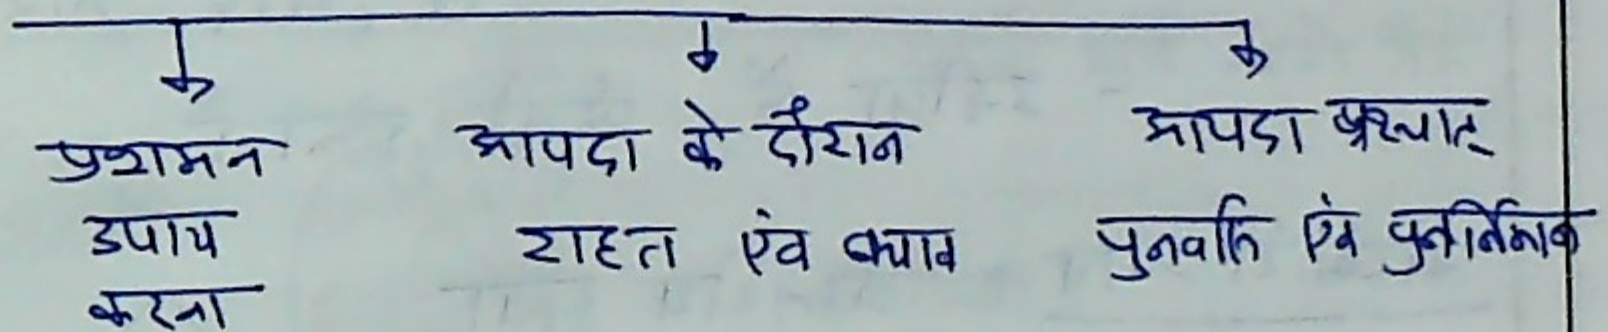 प्रशमन
उपाय
करना
आपदा के दौरान
राहत एंव बचाव
आपदा पश्चात्
पुनर्वास एंव पुनर्निर्माण